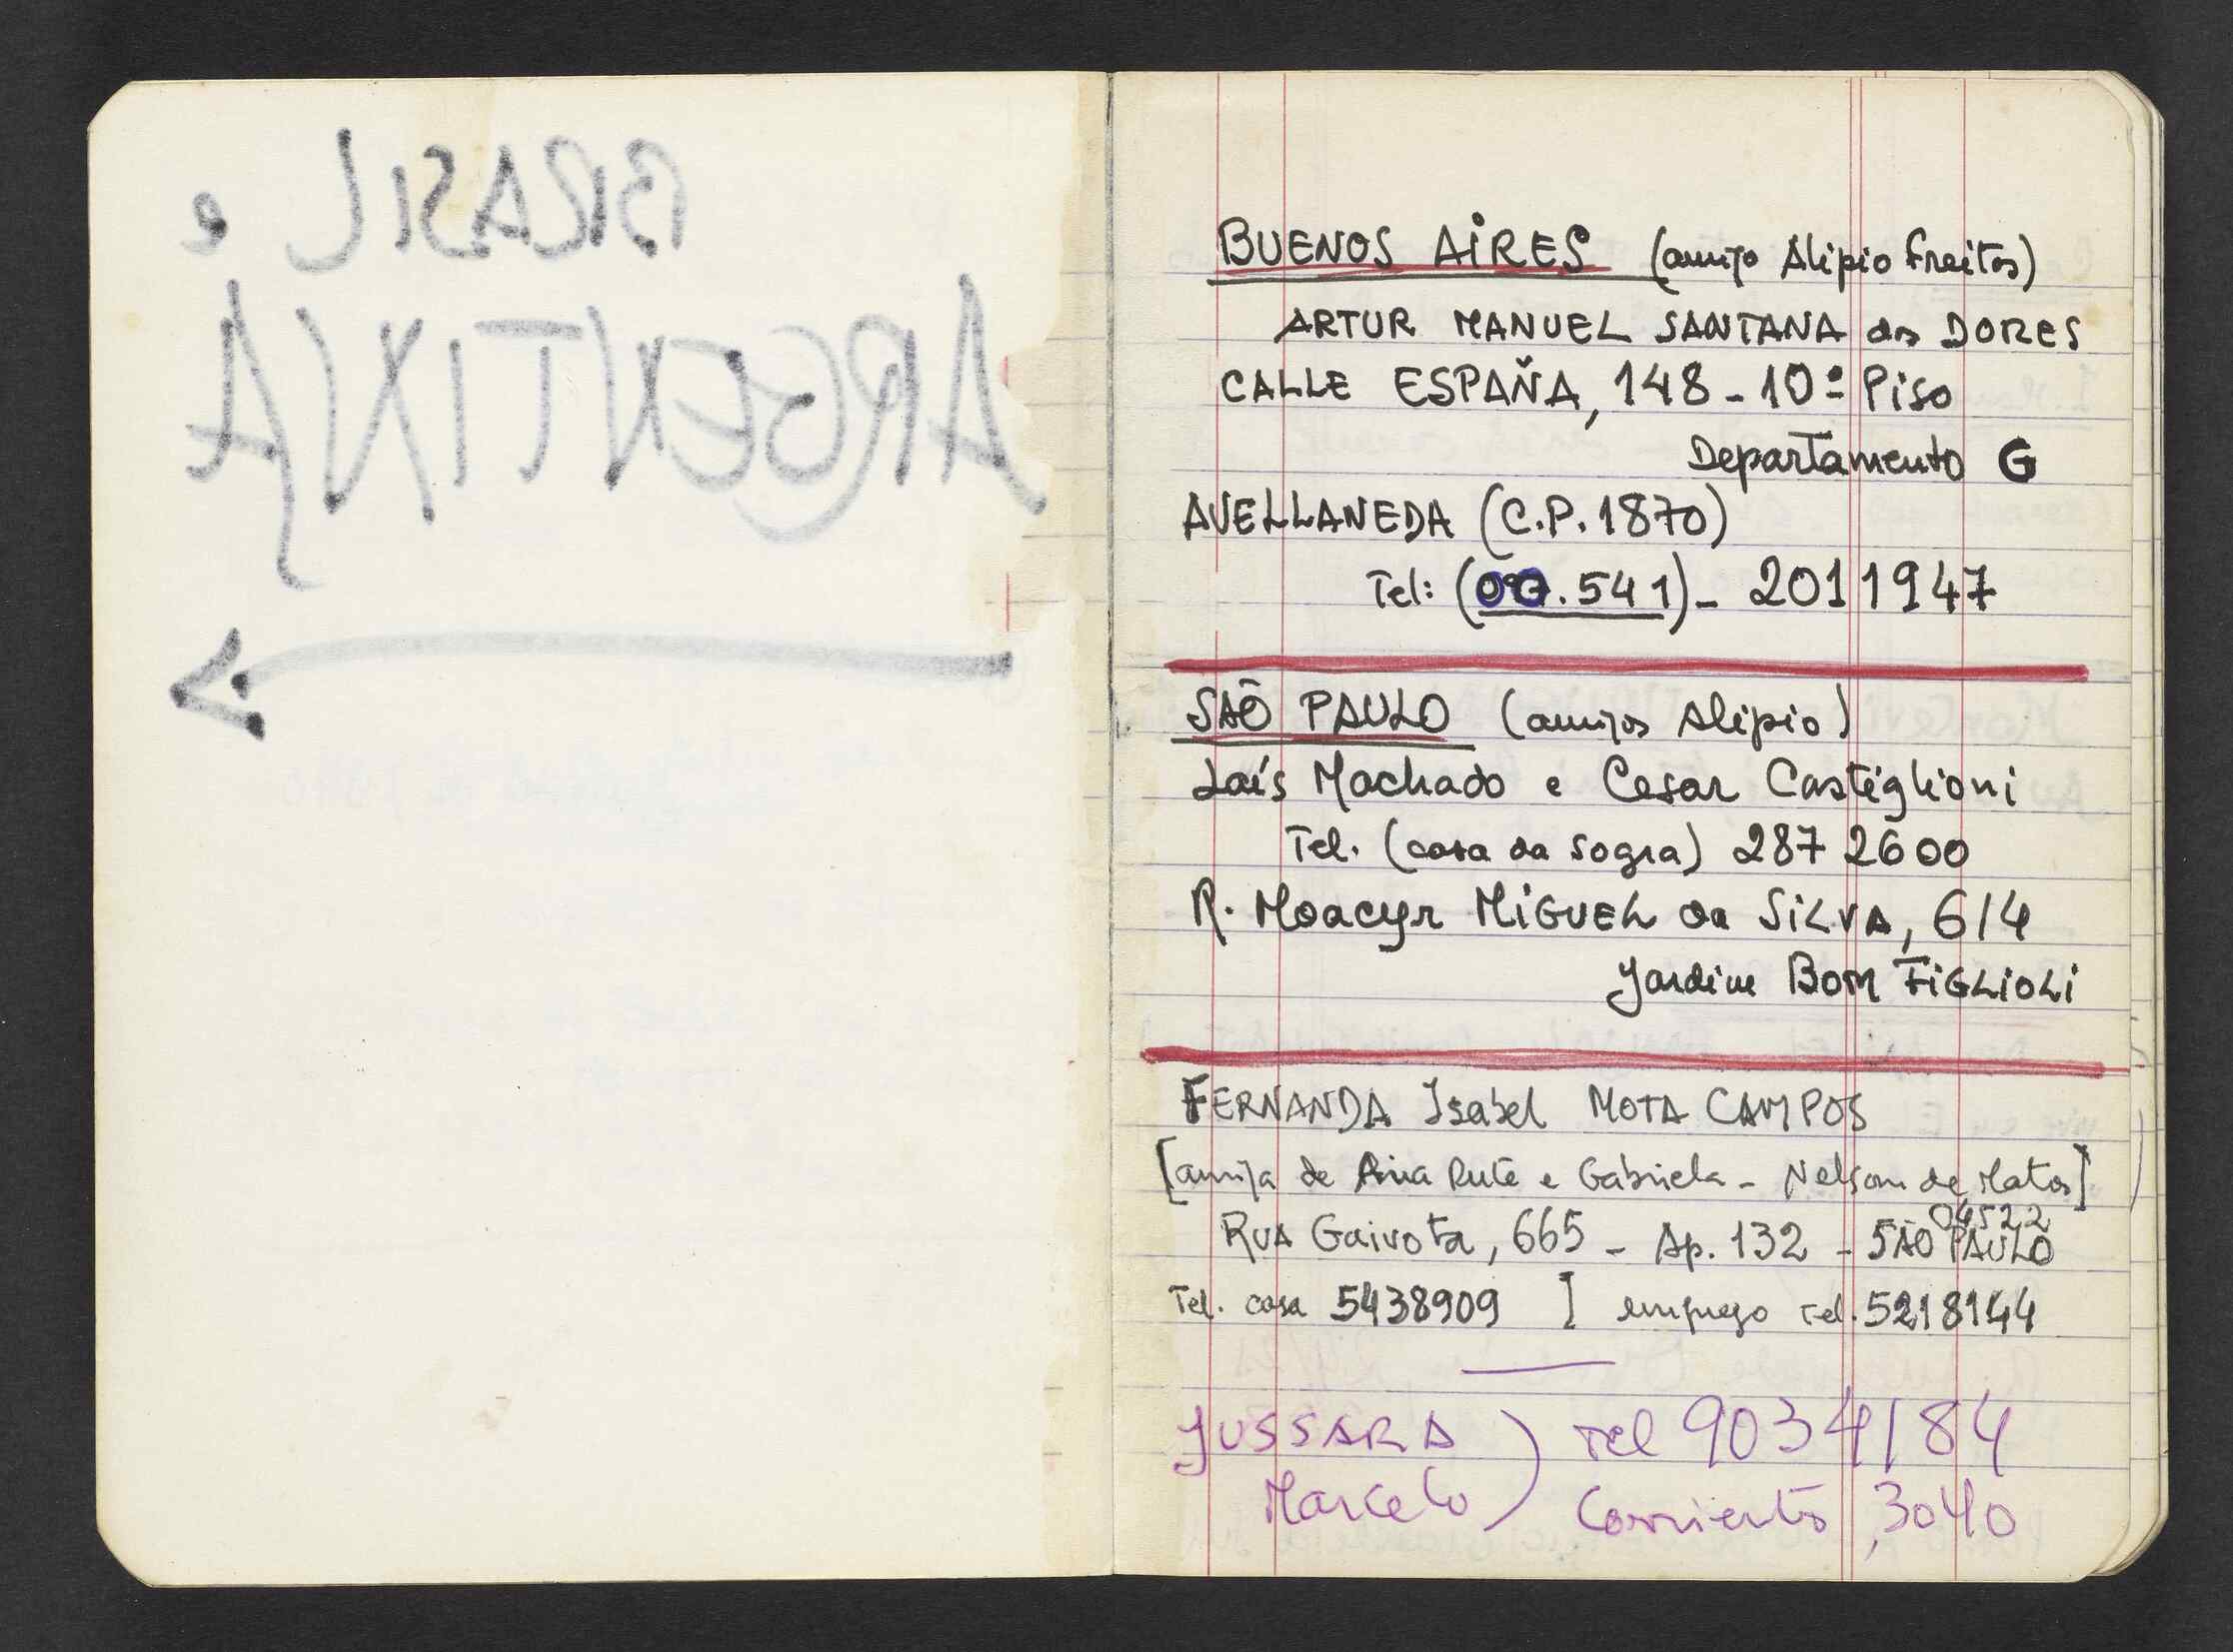 BRASIL e
ARGENTINA
BUENOS AIRES (amigo Alipio Freitas)
ARTUR MANUEL SANTANA das DORES
CALLE ESPAÑA, 148 - 10º Piso
Departamento G
AVELLANEDA (C.P. 1870)
Tel: (00.541) - 2011947
SÃO PAULO (amigos Alipio)
Laís Machado e Cesar Castiglioni
Tel. (casa da sogra) 287 2600
R. Moacyr MIGUEL da SILVA, 614
Jardim BOM FIGLIOLI
FERNANDA Isabel MOTA CAMPOS
[amiga de Ana Rute e Gabriela - Nelson de Matos]
04522
RUA Gaivota, 665 - Ap. 132 - SÃO PAULO
Tel. casa 5438909 ] emprego Tel. 5218144
JUSSARA ) Tel 9034184
Marcelo ) Corrientes, 3040